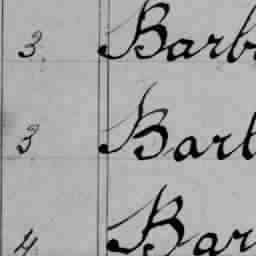 3. Barb
3 Bart
4 Bar